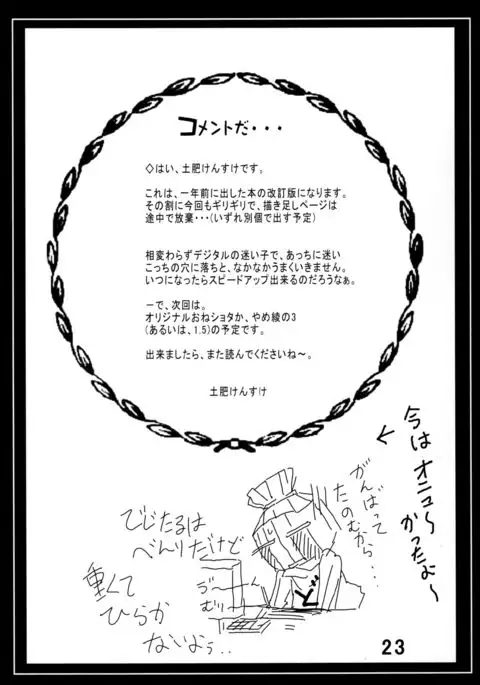 コメントだ・・・
◇はい、土肥けんすけです。
これは、一年前に出した本の改訂版になります。
その割に今回もギリギリで、描き足しページは
途中で放棄・・・(いずれ別個で出す予定)
相変わらずデジタルの迷い子で、あっちに迷い
こっちの穴に落ちと、なかなかうまくいきません。
いつになったらスピードアップ出来るのだろうなぁ。
－で、次回は。
オリジナルおねショタか、やめ綾の3
(あるいは、1.5)の予定です。
出来ましたら、また読んでくださいね～。
土肥けんすけ
←今はオニュ～
かったよ～
がんばって
たのむから・・・
でじたるは
べんりだけど
重くて
ひらか
ないよぅ・・
むり
ど
23